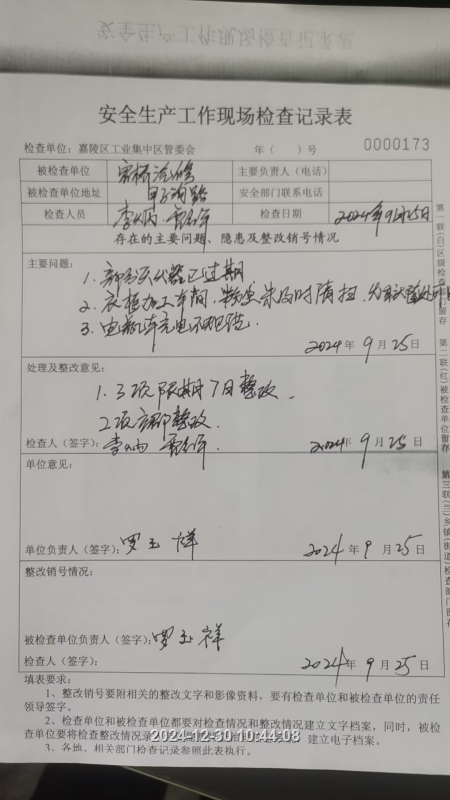 安全生产工作现场检查记录表
检查单位：嘉陵区工业集中区管委会 年（ ）号 0000173
被检查单位 主要负责人（电话）
被检查单位地址 安全部门联系电话
检查人员 检查日期 2024年9月25日
存在的主要问题、隐患及整改销号情况
主要问题：
1. 部分灭火器已过期
2. 衣柜加工车间 未及时清扫
3. 电瓶车充电不规范。
2024年9月25日
处理及整改意见：
1. 3项限期7日整改.
2项立即整改.
检查人（签字）： 2024年9月25日
单位意见：
单位负责人（签字）：罗玉祥 2024年9月25日
整改销号情况：
被检查单位负责人（签字）：罗玉祥
检查人（签字）： 2024年9月25日
填表要求：
1、整改销号要附相关的整改文字和影像资料，要有检查单位和被检查单位的责任
领导签字。
2、检查单位和被检查单位都要对检查情况和整改情况建立文字档案，同时，被检
查单位要将检查整改情况录 建立电子档案。
3、各地、相关部门检查记录参照此表执行。
2024-12-30 10:44:08
第一联（白）区级检查部门留存 第二联（红）被检查单位留存 第三联（兰）乡镇（街道）检查部门留存